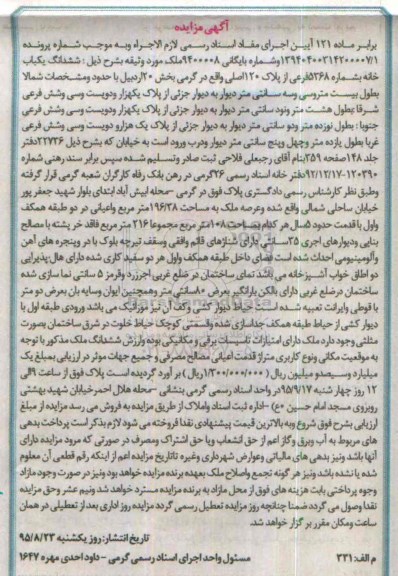 آگهی مزایده
برابر ماده ۱۲۱ آیین اجرای مفاد اسناد رسمی لازم الاجراء وبه موجب شماره پرونده
۱۳۹۴۰۴۰۰۳۱۴۲۰۰۰۰۷/۱ وشماره بایگانی ۹۴۰۰۰۰۸ ملک مورد وثیقه بشرح ذیل : ششدانگ یکباب
خانه بشماره ۵۳۶۸ فرعی از پلاک ۱۲۰ اصلی واقع در گرمی بخش ۲۰ اردبیل با حدود ومشخصات شمالا
بطول بیست متروسی وسه سانتی متر دیوار به دیوار جزئی از پلاک یکهزار ودویست وسی وشش فرعی
شرقا بطول هشت متر ونود سانتی متر دیوار به دیوار جزئی از پلاک یکهزار ودویست وسی وشش فرعی
جنوبا : بطول نوزده متر ودو سانتی متر دیوار به دیوار جزئی از پلاک یک هزارو دویست وسی وشش فرعی
غربا بطول یازده متر وچهل وپنج سانتی متر دیوار ودرب ورود است به خیابان که بشرح ذیل ۲۲۷۳۶ دفتر
جلد ۱۴۸ صفحه ۳۵۹ بنام آقای رجبعلی فلاحی ثبت صادر وتسلیم شده سپس برابر سند رهنی شماره
۱۲۰۳۹۰-۹۲/۱۲/۱۷ دفتر خانه اسناد رسمی ۲۶ گرمی در رهن بانک رفاه کارگران شعبه گرمی قرار گرفته
وطبق نظر کارشناس رسمی دادگستری پلاک فوق در گرمی –محله ابیش آباد ابتدای بلوار شهید جعفر پور
خیابان ساحلی شمالی واقع شده وعرصه ملک به مساحت ۱۹۶/۳۸ متر مربع واعیانی در دو طبقه همکف
واول با قدمت حدود ۵ سال هر کدام بمساحت ۱۰۸ متر مربع مجموعا ۲۱۶ متر مربع فاقد خر پشته با مصالح
بنایی ودیوارهای اجری ۳۵ سانتی دارای شناژهای قائم وافقی وسقف تیرچه بلوک با در وپنجره های آهن
وآلومینیومی احداث شده است فضای داخل طبقه همکف واول هر دو سفید کاری شده دارای هال،پذیرایی
دو اطاق خواب آشپزخانه می باشد نمای ساختمان در ضلع غربی اجرزرد وقرمز ۵ سانتی نما سازی شده
ساختمان درضلع غربی دارای بالکن یارانگیر بعرض ۸۰ سانتی متر وهمچنین ایوان وسایه بان بعرض دو متر
با قوطی وایرانت تعبیه شده است حیاط دیوار کشی وکف آن نیز موزائیک می باشد ورودی طبقه اول با
دیوار کشی از حیاط طبقه همکف جداسازی شده وقسمتی کوچک حیاط خلوت در شرق ساختمان بصورت
مثلثی وجود دارد ملک دارای امتیازات تاسیسات برقی و مکانیکی بوده وارزش ششدانگ ملک مذکور با توجه
به موقعیت مکانی ونوع کاربری متراژ قدمت اعیانی مصالح مصرفی و جمیع جهات موثر در ارزیابی بمبلغ یک
میلیارد وسیصدو میلیون ریال (۱/۳۰۰/۰۰۰/۰۰۰ ریال) بر آورد گردیده است پلاک فوق از ساعت ۹ الی
۱۲ روز چهار شنبه ۹۵/۹/۱۷ در واحد اسناد رسمی گرمی بنشانی –محله هلال احمر خیابان شهید بهشتی
روبروی مسجد امام حسین «ع» –اداره ثبت اسناد واملاک از طریق مزایده به فروش می رسد مزایده از مبلغ
ارزیابی بشرح فوق شروع وبه بالاترین قیمت پیشنهادی نقدا فروخته می شود لازم بذکر است پرداخت بدهی
های مربوط به آب وبرق وگاز اعم از حق انشعاب ویا حق اشتراک ومصرف در صورتی که مورد مزایده دارای
آنها باشد ونیز بدهی های مالیاتی وعوارض شهرداری وغیره تاتاریخ مزایده اعم از اینکه رقم قطعی آن معلوم
شده یا نشده باشد ونیز هر گونه تجمع واصلاح ملک بعهده برنده مزایده خواهد بود ونیز در صورت وجود مازاد
وجوه پرداختی بابت هزینه های فوق از محل مازاد به برنده مزایده مسترد خواهد شد ونیم عشر وحق مزایده
نقدا وصول می گردد ضمنا چنانچه روز مزایده تعطیل رسمی گردد مزایده روز اداری بعد از تعطیلی در همان
ساعت ومکان مقرر بر گزار خواهد شد.
تاریخ انتشار: روز یکشنبه ۹۵/۸/۲۳
م الف: ۳۳۱ مسئول واحد اجرای اسناد رسمی گرمی – داود احدی مهره ۱۶۴۷